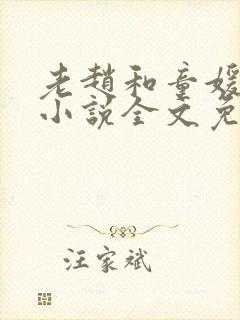 老趙和童媛
小說全文免
汪家斌